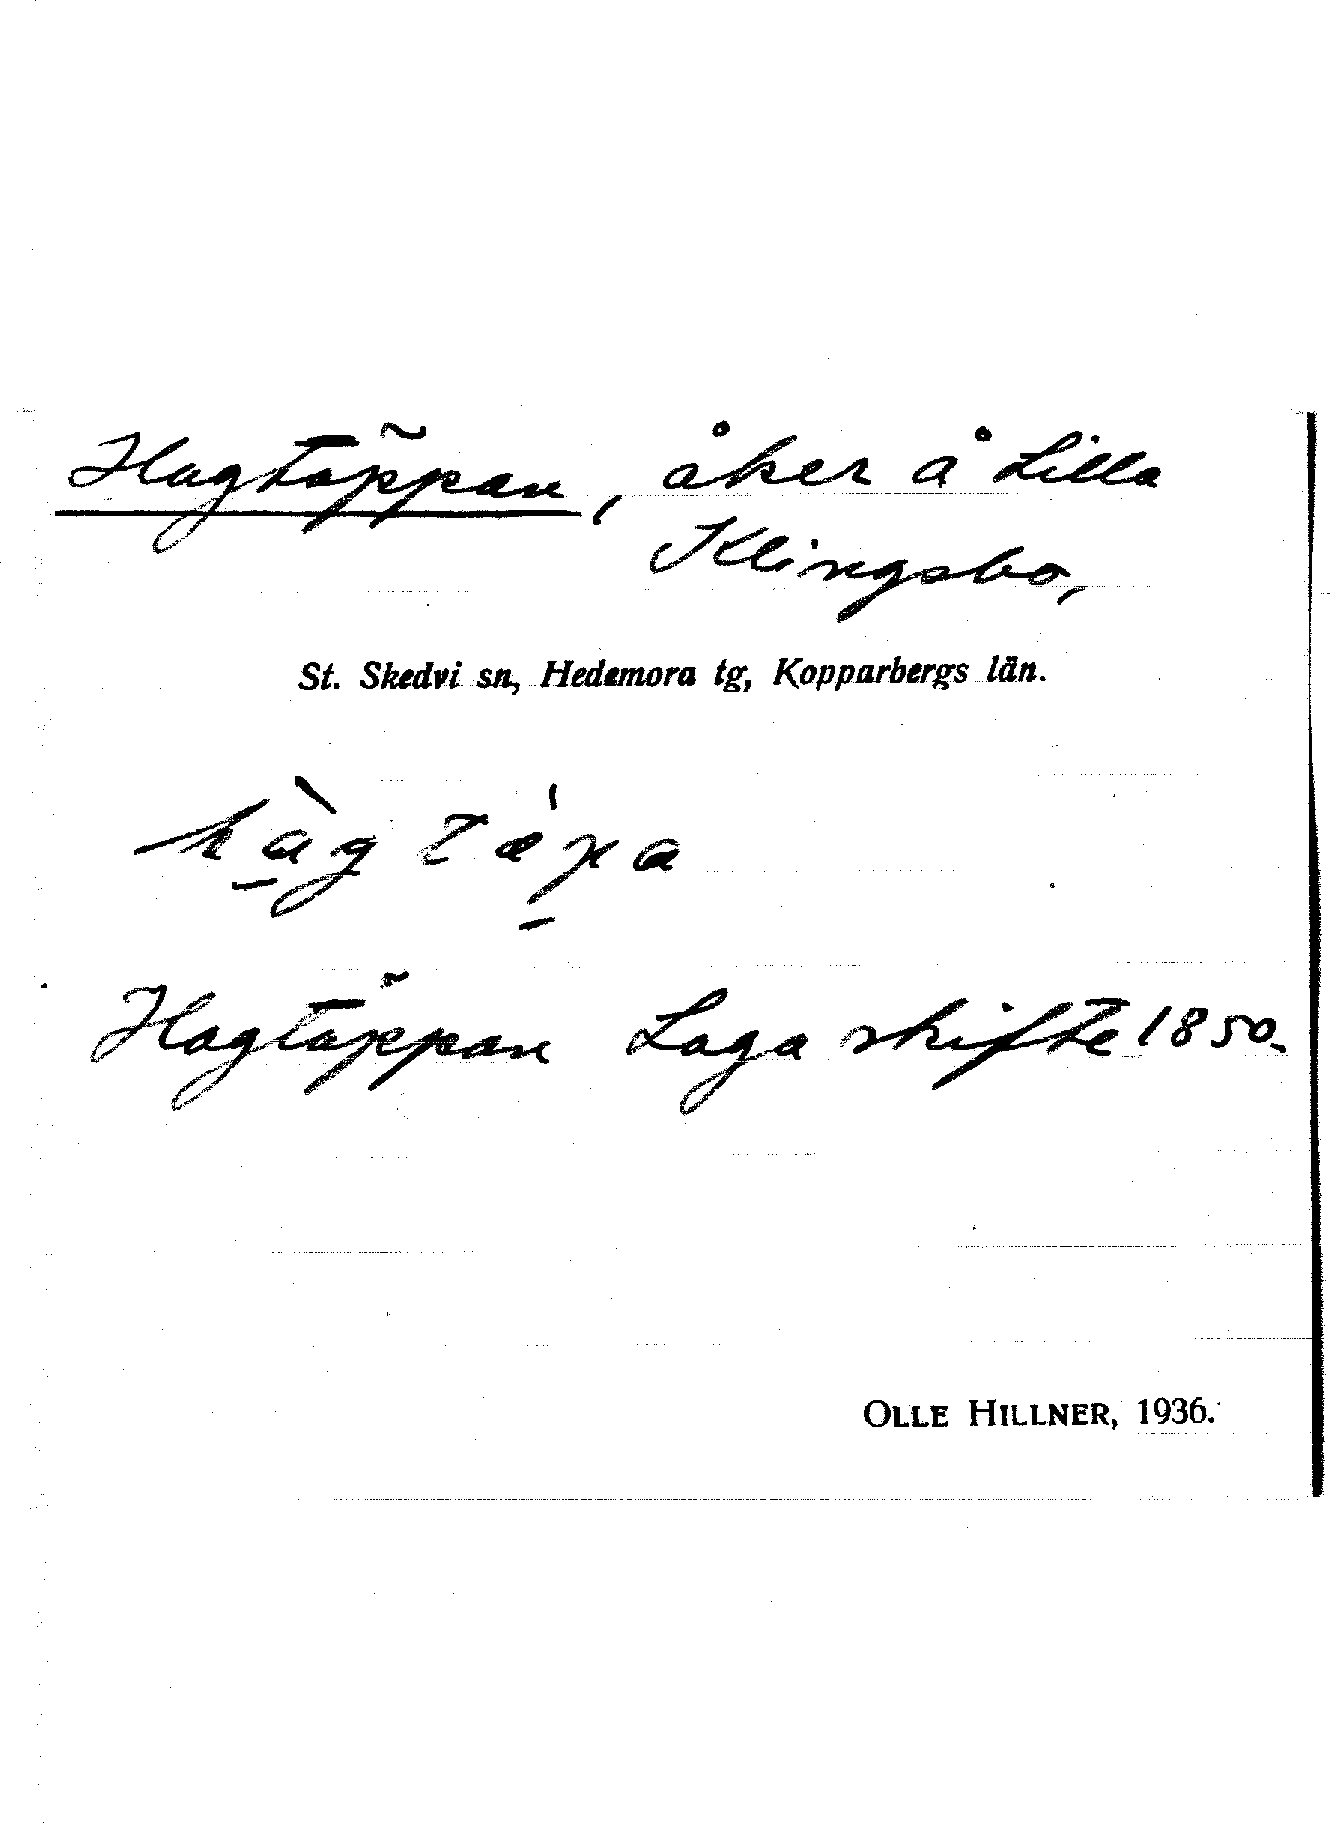 Hagtäppan, åker å Lilla
Klingsbo,
St. Skedvi sn, Hedemora tg, Kopparbergs län.
hàgtæ̀pa
Hagtäppan Laga skifte 1850.
OLLE HILLNER, 1936.